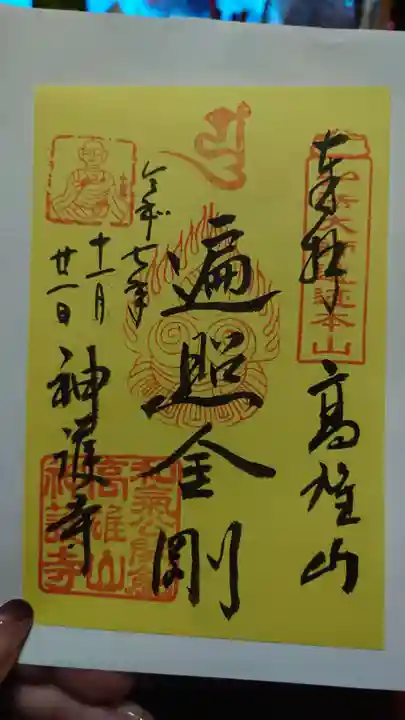 奉拝
高雄山
遍照金剛
令和七年
十一月
廿一日
神護寺
高雄山
神護寺